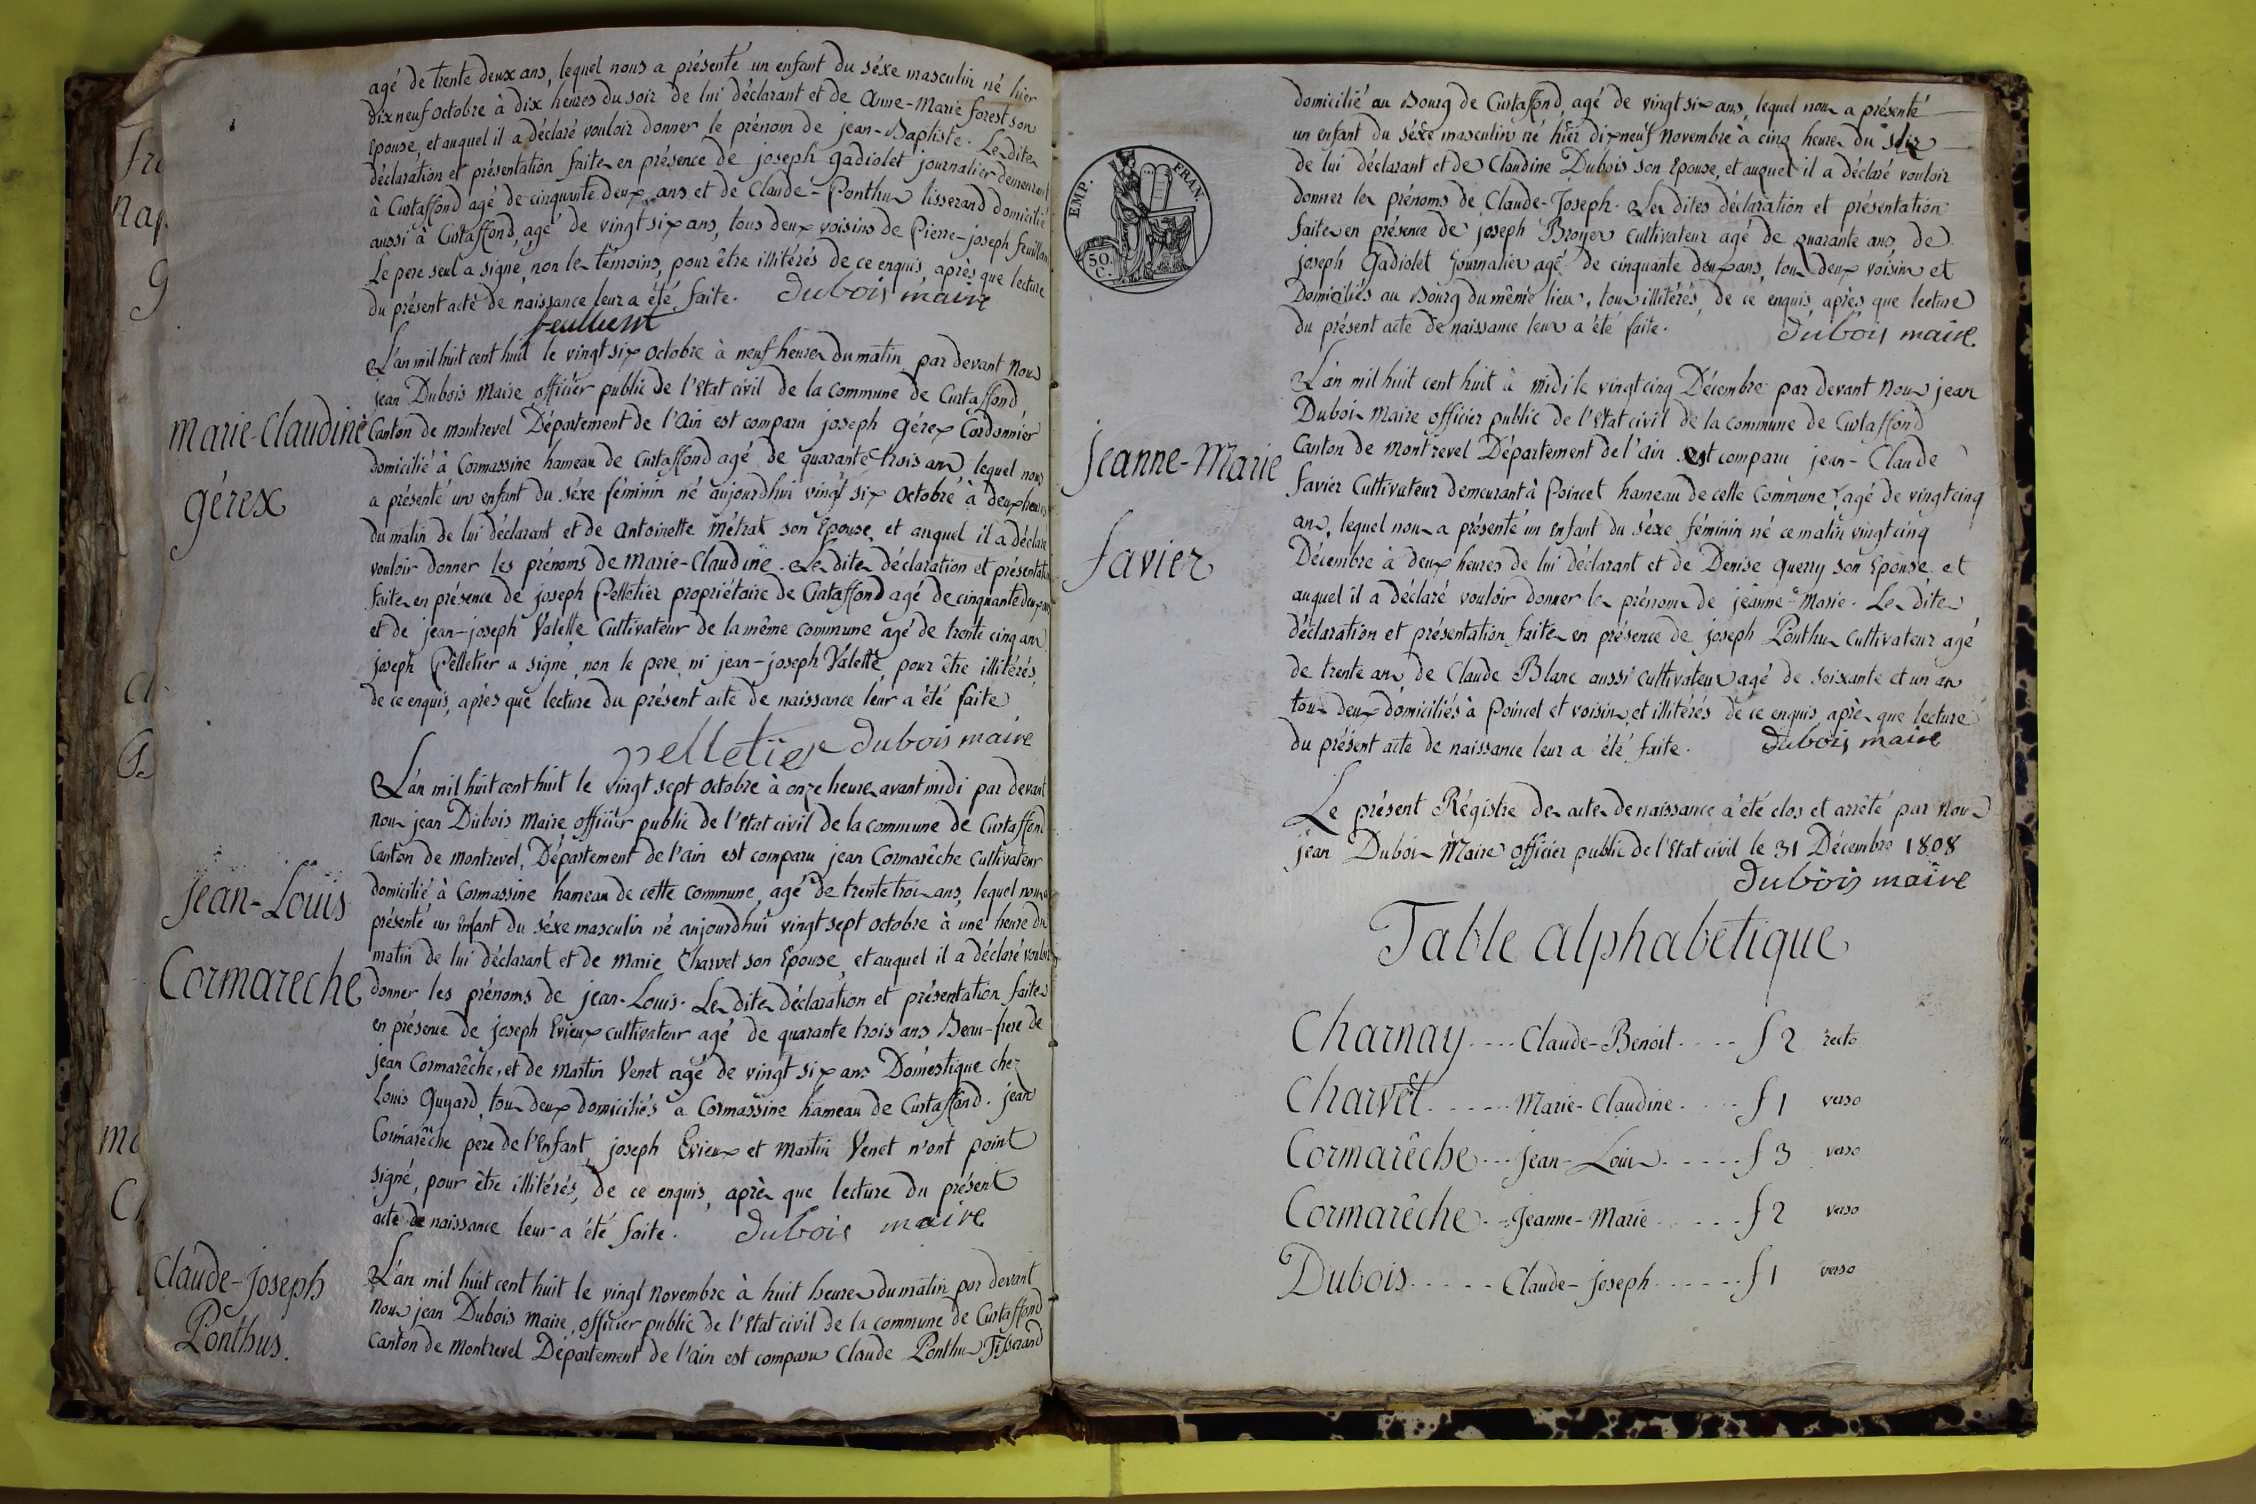 agé de trente deux ans, lequel nous a présenté un enfant du séxe masculin né hier
dix neuf octobre à dix heures du soir de lui déclarant et de Anne-Marie forest son
Epouse, et auquel il a déclaré vouloir donner le prénom de jean-Baptiste. Les dites
déclaration et présentation faites en présence de joseph gadiolet journalier demeurant
à Curtaffond agé de cinquante deux ans et de Claude-Ponthus tisserand domicilié
aussi à Curtaffond, agé de vingt six ans, tous deux voisins de Pierre-joseph feuillant
Le pere seul a signé, non les témoins, pour être illitérés de ce enquis, après que lecture
du présent acte de naissance leur a été faite. Dubois maire
feullient
L'an mil huit cent huit le vingt six octobre à neuf heures du matin par devant Nous
jean Dubois Maire officier public de l'Etat civil de la commune de Curtaffond
Marie-Claudine
Canton de montrevel Département de l'Ain est comparu joseph gérex Cordonnier
domicilié à Cormassine hameau de Curtaffond agé de quarante trois ans lequel nous
gérex
a présenté un enfant du séxe féminin né aujourdhui vingt six octobre à deux heures
du matin de lui déclarant et de antoinette métrat son Epouse, et auquel il a déclaré
vouloir donner les prénoms de Marie-Claudine. Les dites déclaration et présentation
faites en présence de joseph Pelletier propriétaire de Curtaffond agé de cinquante deux ans
et de jean-joseph Valette Cultivateur de la même commune agé de trente cinq ans
joseph Pelletier a signé, non le pere ni jean-joseph Valette, pour être illitérés,
de ce enquis, après que lecture du présent acte de naissance leur a été faite
pelletier Dubois maire
L'an mil huit cent huit le vingt sept octobre à onze heures avant midi par devant
Nous jean Dubois Maire officier public de l'Etat civil de la commune de Curtaffond
Canton de montrevel, Département de l'Ain est comparu jean Cormarêche Cultivateur
Jean-Louis
domicilié à Cormassine hameau de cette commune, agé de trente trois ans, lequel nous a
présenté un Enfant du séxe masculin né aujourdhui vingt sept octobre à une heure du
matin de lui déclarant et de Marie Charvet son Epouse, et auquel il a déclaré vouloir
Cormareche
donner les prénoms de jean-Louis. Les dites déclaration et présentation faites
en présence de joseph Evieux cultivateur agé de quarante trois ans Beau-frere de
jean Cormarêche, et de Martin Venet agé de vingt six ans Domestique chez
Louis Guyard, tous deux domiciliés a Cormassine hameau de Curtaffond. jean
Cormarêche père de l'Enfant, joseph Evieux et Martin Venet n'ont point
signé, pour être illitérés, de ce enquis, après que lecture du présent
acte de naissance leur a été faite. Dubois maire
Claude-Joseph
Ponthus.
L'an mil huit cent huit le vingt novembre à huit heures du matin par devant
Nous jean Dubois Maire, officier public de l'Etat civil de la commune de Curtaffond
Canton de Montrevel Département de l'Ain est comparu Claude Ponthus Tisserand
domicilié au Bourg de Curtaffond, agé de vingt six ans, lequel nous a présenté
un enfant du séxe masculin né hier dix neuf Novembre à cinq heures du soir
de lui déclarant et de Claudine Dubois son Epouse, et auquel il a déclaré vouloir
donner les prénoms de Claude-Joseph. Les dites déclaration et présentation
faites en présence de joseph Broyer cultivateur agé de quarante ans, de
joseph gadiolet journalier agé de cinquante deux ans, tous deux voisins et
Domiciliés au Bourg du même lieu, tous illitérés, de ce enquis, après que lecture
du présent acte de naissance leur a été faite. Dubois maire
EMP. FRAN.
50. C.
L'an mil huit cent huit à midi le vingt cinq Décembre par devant Nous jean
Dubois Maire officier public de l'Etat civil de la commune de Curtaffond
Jeanne-Marie
Canton de Montrevel Département de l'Ain est comparu jean-Claude
favier Cultivateur demeurant à Poincet hameau de cette Commune, agé de vingt cinq
ans, lequel nous a présenté un Enfant du séxe féminin né ce matin vingt cinq
favier
Décembre à deux heures de lui déclarant et de Denise guerry son Epouse et
auquel il a déclaré vouloir donner les prénoms de jeanne-Marie. Les dites
déclaration et présentation faites en présence de joseph Ponthus cultivateur agé
de trente ans, de Claude Blanc aussi cultivateur agé de soixante et un an
tous deux domiciliés à Poincet et voisins, et illitérés de ce enquis, après que lecture
du présent acte de naissance leur a été faite. Dubois maire
Le présent Régistre des actes de naissance à été clos et arrêté par Nous
jean Dubois Maire officier public de l'Etat civil le 31 Décembre 1808
Dubois maire
Table alphabetique
Charnay .... Claude-Benoit .... f 2 recto
Charvet ...... Marie-Claudine .... f 1 verso
Cormarêche ... jean-Louis ..... f 3 verso
Cormarêche ... Jeanne-Marie ...... f 2 verso
Dubois ..... Claude-joseph ...... f 1 verso